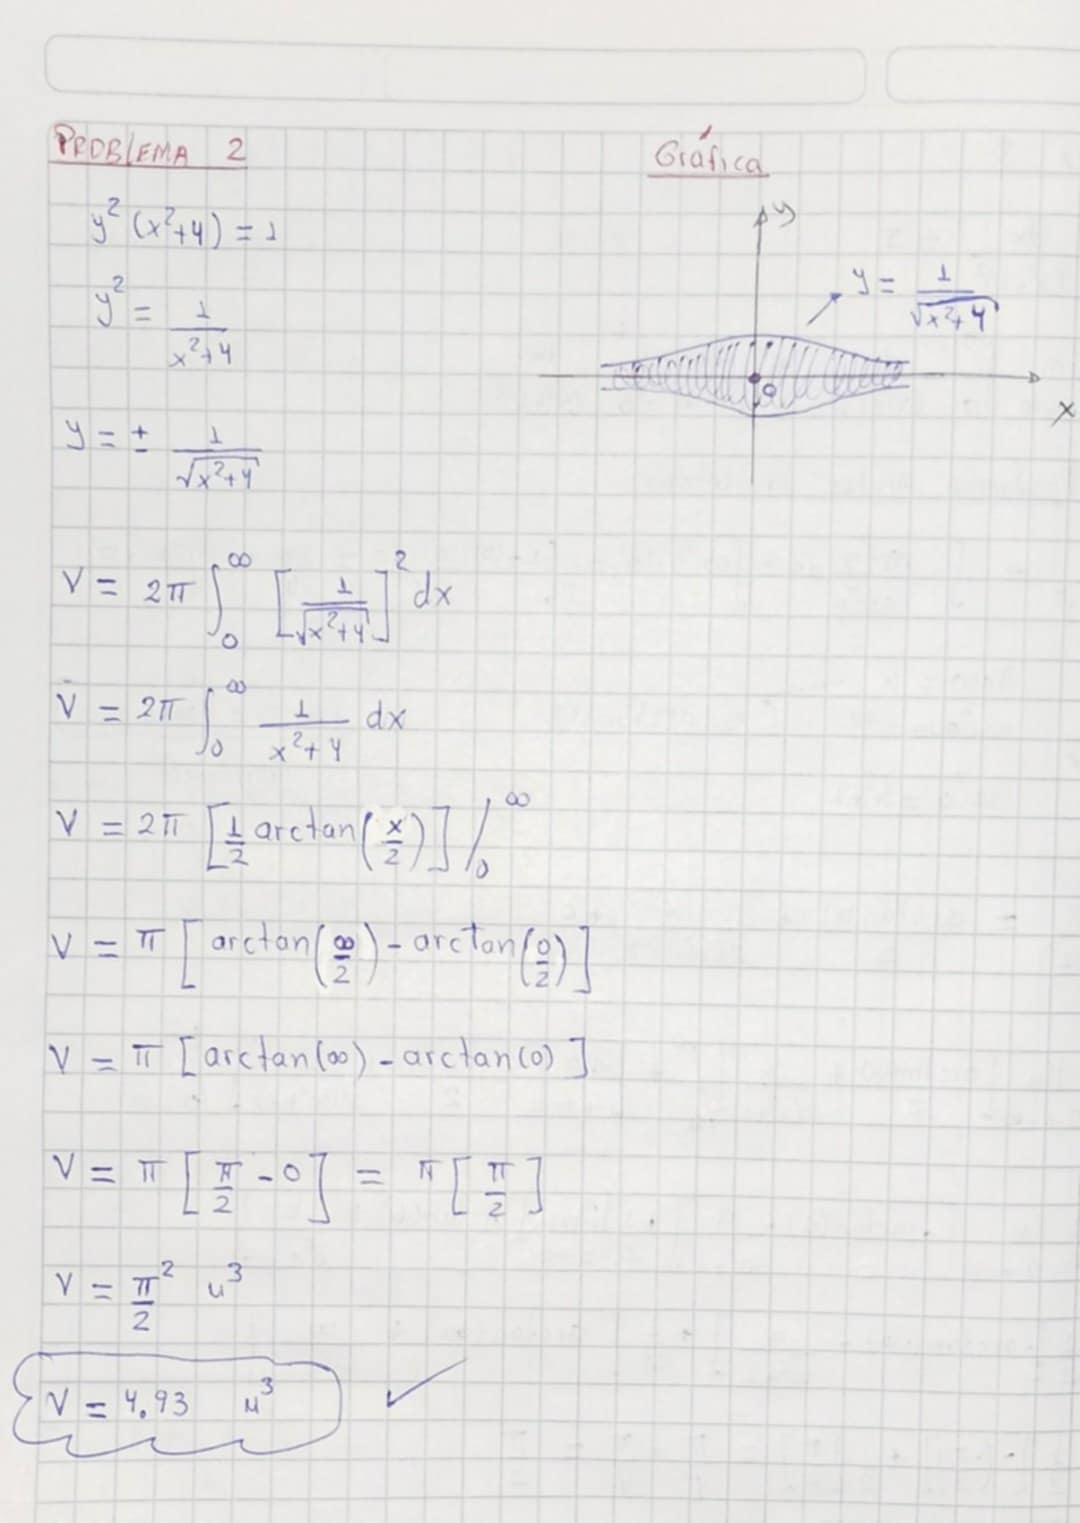 PROBLEMA 2
y²(x²+4) = 1
y² = 1/(x²+4)
y = ± 1/√(x²+4)
Gráfica
y
y = 1/√(x²+4)
0
x
V = 2π ∫₀^∞ [1/√(x²+4)]² dx
V = 2π ∫₀^∞ 1/(x²+4) dx
V = 2π [1/2 arctan(x/2)] /₀^∞
V = π [arctan(∞/2) - arctan(0/2)]
V = π [arctan(∞) - arctan(0)]
V = π [π/2 - 0] = π [π/2]
V = π²/2 u³
V = 4.93 u³ ✓